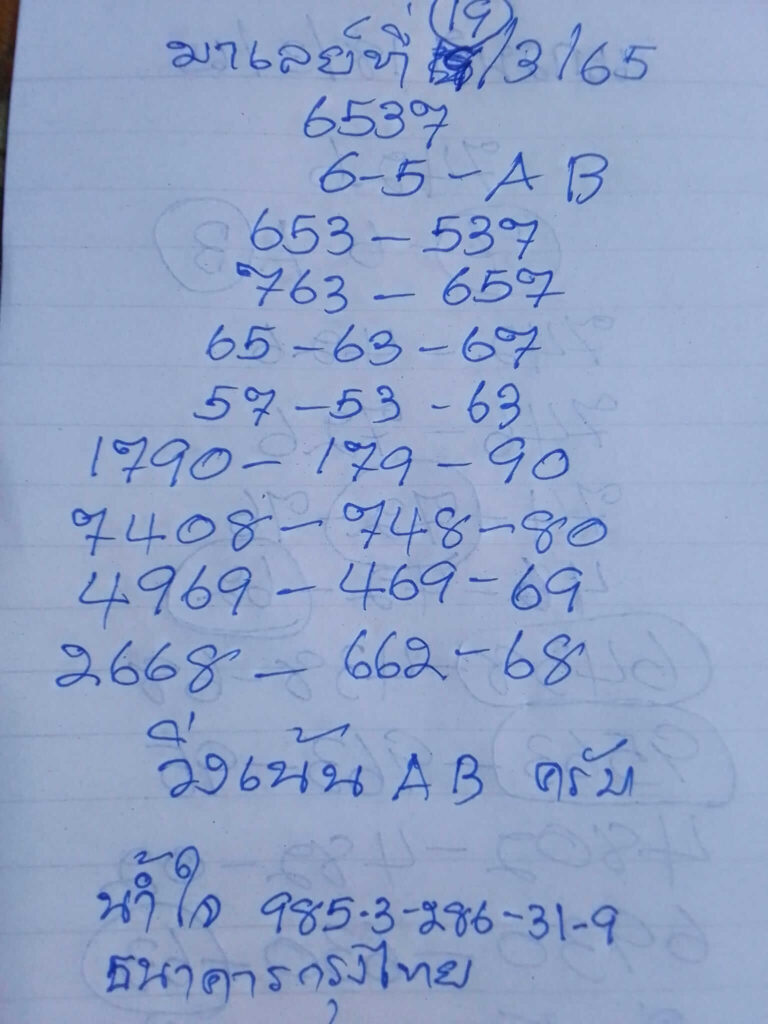 มาเลย์ที่ 19/3/65
6537
6-5-AB
653-537
763-657
65-63-67
57-53-63
1790-179-90
7408-748-80
4969-469-69
2668-662-68
วิ่งเน้น AB ครับ
น้ำใจ 985-3-286-31-9
ธนาคารกรุงไทย